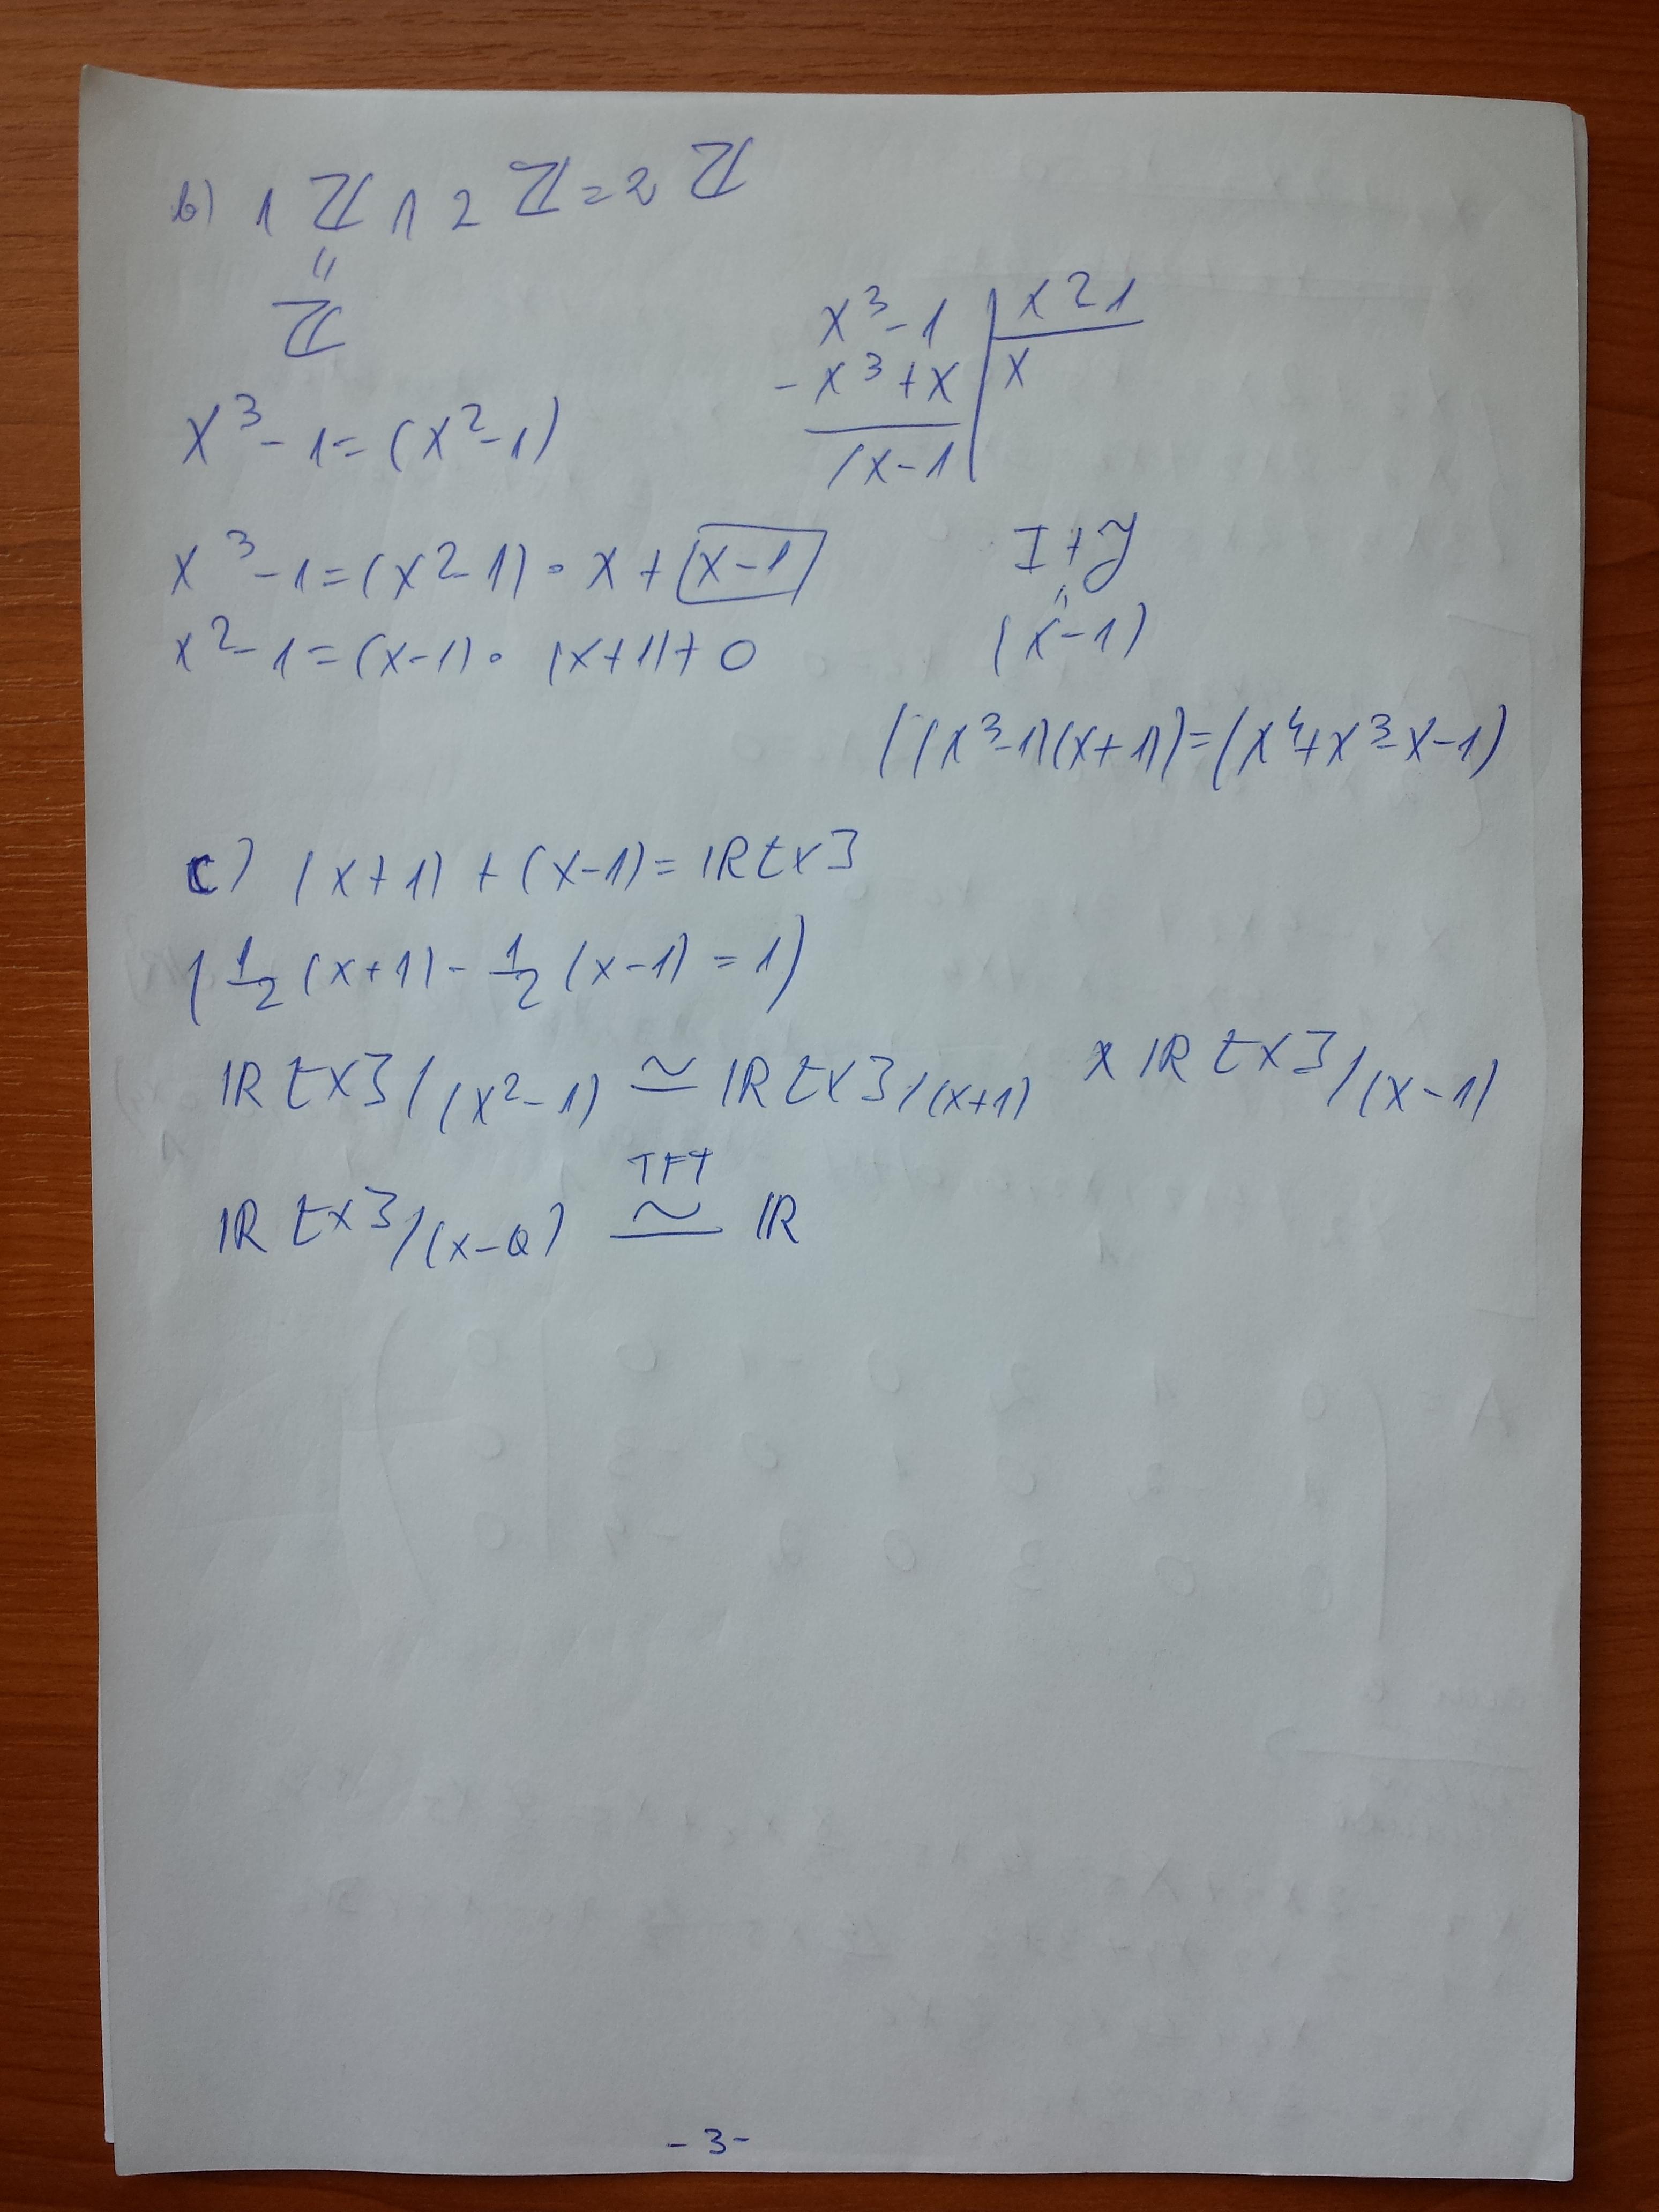 b) 1 ℤ ∩ 2 ℤ = 2 ℤ
"
ℤ
x³-1 | x²1
-x³+x | x
/x-1
x³-1=(x²-1)
x³-1=(x²-1)·x+(x-1)
x²-1=(x-1)·(x+1)+0
I+J
"
(x-1)
((x³-1)(x+1))=(x⁴+x³-x-1)
c) (x+1)+(x-1)=ℝ[x]
(½(x+1)-½(x-1)=1)
ℝ[x]/(x²-1) ≃ ℝ[x]/(x+1) × ℝ[x]/(x-1)
TFI
ℝ[x]/(x-a) ≃ ℝ
-3-